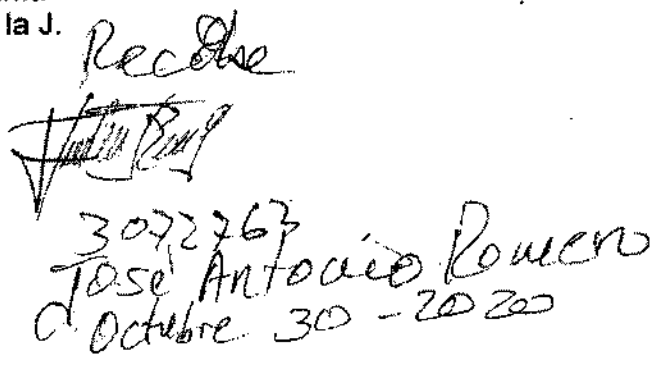 la J.
Recibe
3072763
José Antonio Romero
Octubre 30 - 2020